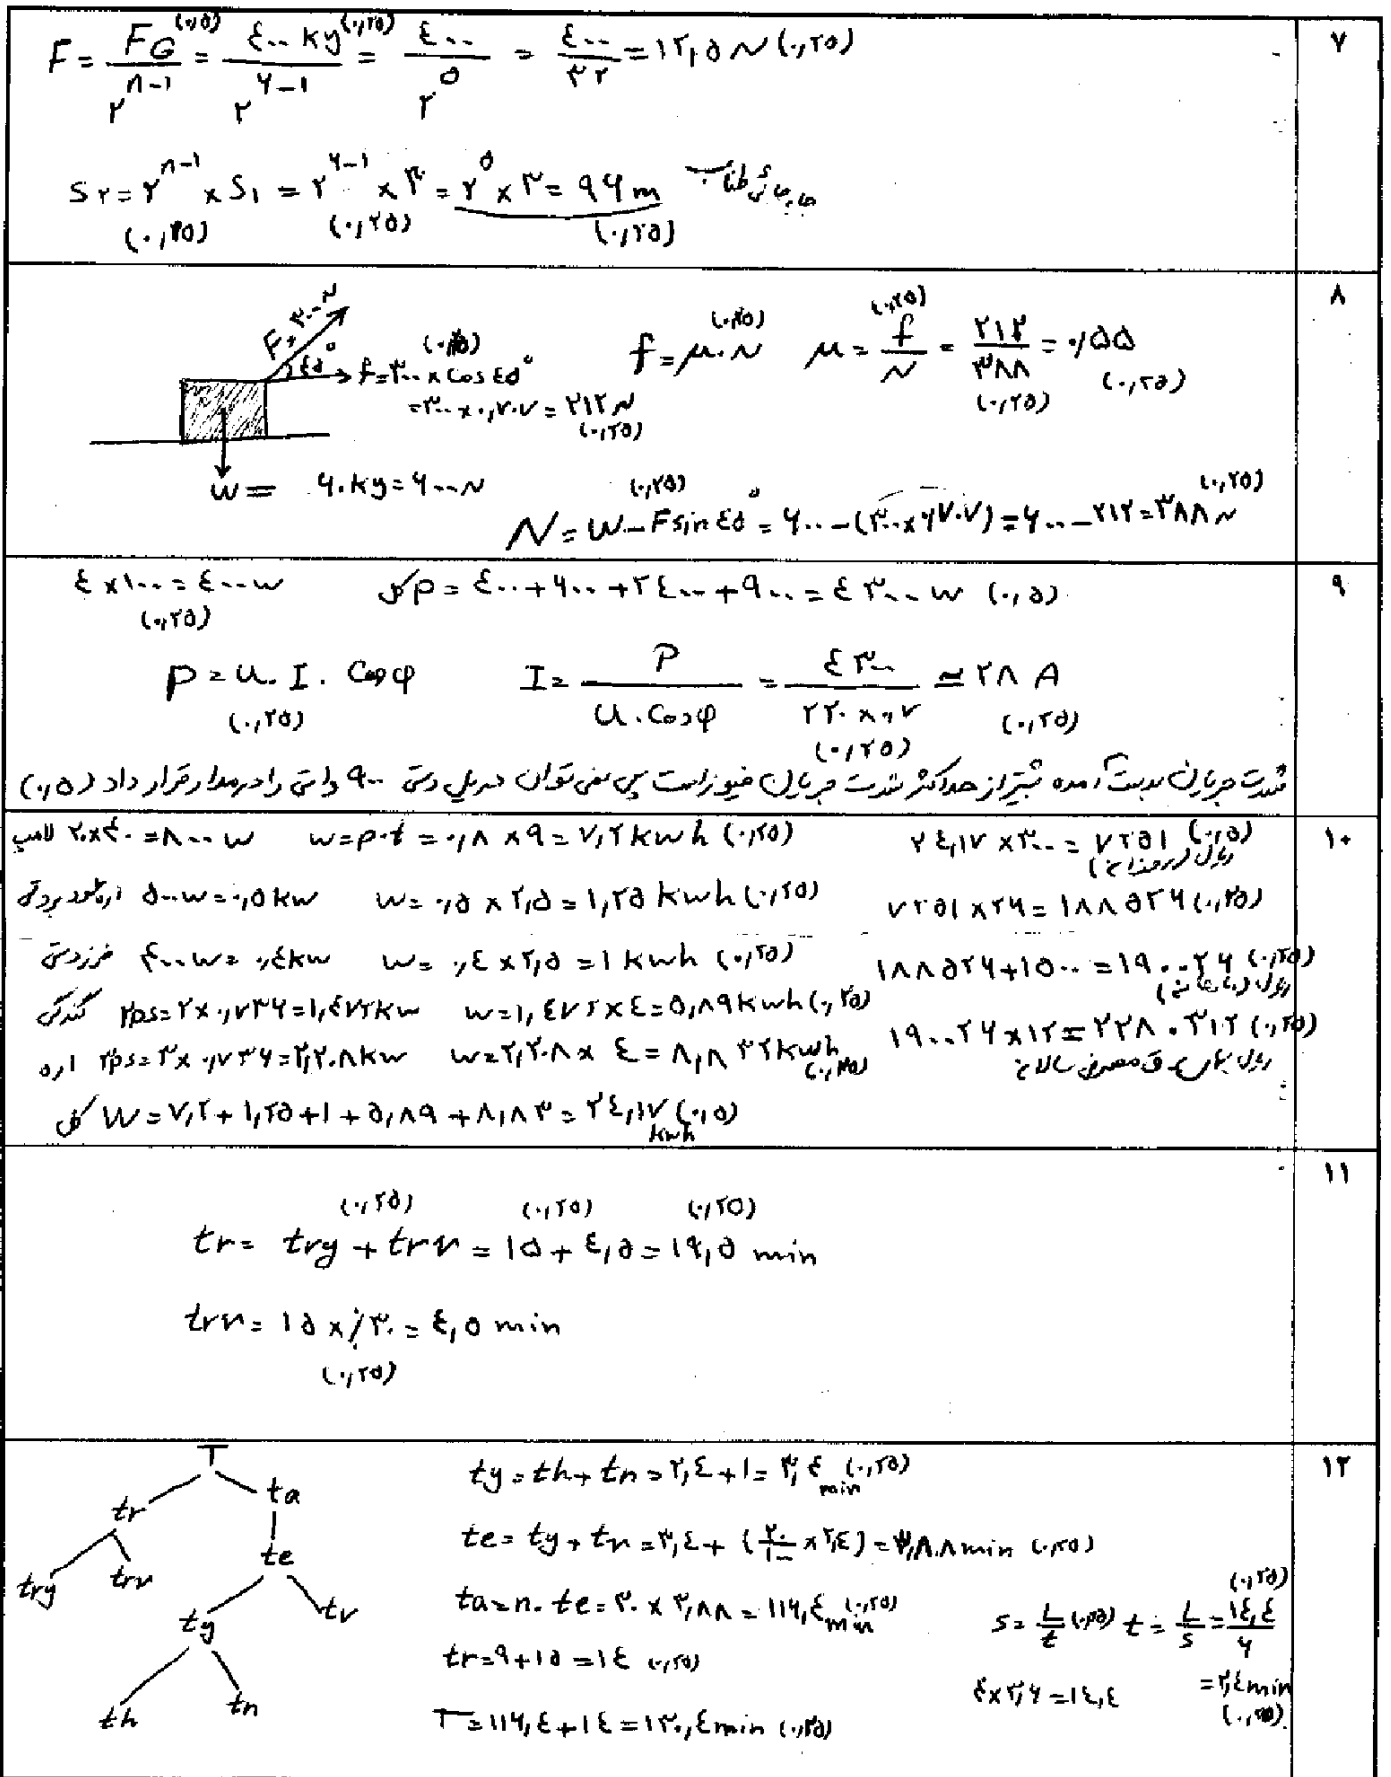 ۷
F = FG / ۲^(n-1) (۰,۲۵) = ٤۰۰ kg / ۲^(۶-۱) (۰,۲۵) = ٤۰۰ / ۲^۵ = ٤۰۰ / ۳۲ = ۱۲,۵ N (۰,۲۵)
S۲ = ۲^(n-1) × S۱ = ۲^(۶-۱) × ۳ = ۲^۵ × ۳ = ۹۶ m جابجائی طناب
(۰,۲۵) (۰,۲۵) (۰,۲۵)
۸
F = ۳۰۰ N
٤۵° f = ۳۰۰ × cos ٤۵° (۰,۲۵)
= ۳۰۰ × ۰,۷۰۷ = ۲۱۲ N (۰,۲۵)
f = μ.N (۰,۲۵) μ = f / N (۰,۲۵) = ۲۱۲ / ۳۸۸ (۰,۲۵) = ۰/۵۵ (۰,۲۵)
W = ۶۰kg = ۶۰۰ N
N = W - F sin ٤۵° (۰,۲۵) = ۶۰۰ - (۳۰۰ × ۰,۷۰۷) = ۶۰۰ - ۲۱۲ = ۳۸۸ N (۰,۲۵)
۹
٤ × ۱۰۰ = ٤۰۰ w (۰,۲۵) P کل = ٤۰۰ + ۶۰۰ + ۲٤۰۰ + ۹۰۰ = ٤۳۰۰ w (۰,۵)
P = u. I. Cosφ (۰,۲۵) I = P / u.Cosφ = ٤۳۰۰ / ۲۲۰ × ۰,۷ (۰,۲۵) ≃ ۲۸ A (۰,۲۵)
شدت جریان بدست آمده بیشتر از حداکثر شدت جریان فیوز است پس نمی توان دریل دستی ۹۰۰ واتی را در مدار قرار داد (۰,۵)
۱۰
لامپ ۲۰×٤۰ = ۸۰۰ w w = p.t = ۰,۸ × ۹ = ۷,۲ kwh (۰,۲۵)
اره عمود بر دستی ۵۰۰w = ۰,۵kw w = ۰,۵ × ۲,۵ = ۱,۲۵ kwh (۰,۲۵)
فرز دستی ٤۰۰w = ۰,٤kw w = ۰,٤ × ۲,۵ = ۱ kwh (۰,۲۵)
گندگی ۲ps = ۲ × ۰,۷۳۶ = ۱,٤۷۲kw w = ۱,٤۷۲ × ٤ = ۵,۸۹kwh (۰,۲۵)
اره ۳ps = ۳ × ۰,۷۳۶ = ۲,۲۰۸kw w = ۲,۲۰۸ × ٤ = ۸,۸۳۲kwh (۰,۲۵)
کل W = ۷,۲ + ۱,۲۵ + ۱ + ۵,۸۹ + ۸,۸۳ = ۲٤,۱۷ kwh (۰,۵)
۲٤,۱۷ × ۳۰۰ = ۷۲۵۱ (۰,۵)
ریال (روزانه)
۷۲۵۱ × ۲۶ = ۱۸۸۵۲۶ (۰,۲۵)
۱۸۸۵۲۶ + ۱۵۰۰ = ۱۹۰۰۲۶ (۰,۲۵)
ریال (ماهانه)
۱۹۰۰۲۶ × ۱۲ = ۲۲۸۰۳۱۲ (۰,۲۵)
ریال بهای برق مصرفی سالانه
۱۱
(۰,۲۵) (۰,۲۵) (۰,۲۵)
tr = try + trv = ۱۵ + ٤,۵ = ۱۹,۵ min
trv = ۱۵ × ٪۳۰ = ٤,۵ min
(۰,۲۵)
۱۲
T
tr ta
te
try trv
ty tv
th tn
ty = th + tn = ۲,٤ + ۱ = ۳,٤ min (۰,۲۵)
te = ty + tv = ۳,٤ + (۲۰/۱۰۰ × ۲,٤) = ۳,۸۸ min (۰,۲۵)
ta = n. te = ۳۰ × ۳,۸۸ = ۱۱۶,٤ min (۰,۲۵)
tr = ۹ + ۱۵ = ۱٤ (۰,۲۵)
T = ۱۱۶,٤ + ۱٤ = ۱۳۰,٤ min (۰,۲۵)
S = L / t (۰,۲۵) t = L / S = ۱٤,٤ / ۶ (۰,۲۵)
٤ × ۳,۶ = ۱٤,٤ = ۲,٤ min
(۰,۲۵)